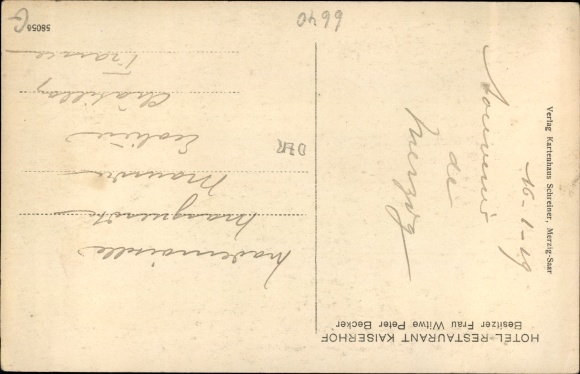 HOTEL-RESTAURANT KAISERHOF
Besitzer Frau Witwe Peter Becker
Verlag Kartenhaus Schreiser, Merzig-Saar
58058
16-1-19
Souvenir
de
Merzig
Mademoiselle
Marguerite
Châtillon
France
DER
6640